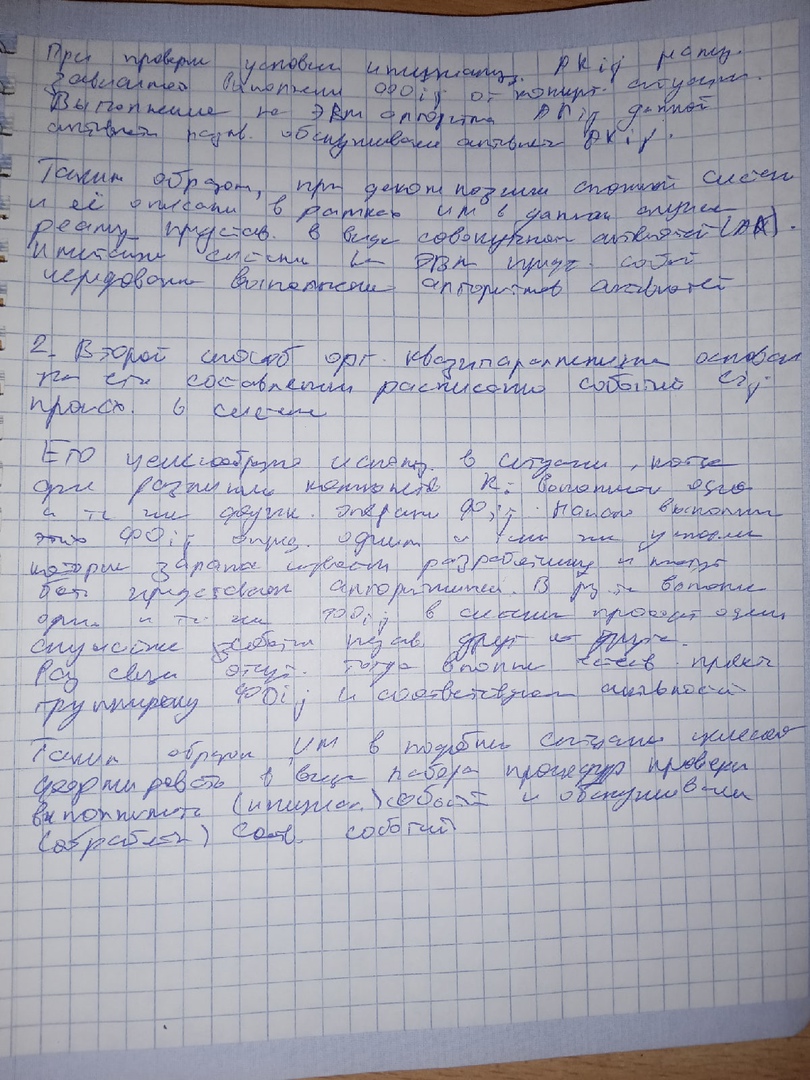 При проверке условия инициализ. АКij реализ.
зависимость выполнения ФОij от конкрт. ситуации.
Выполнение на ЭВМ алгоритма АКij данной
активности назыв. обслуживание активности АКij.
Таким образом, при декомпозиции сложной системы
и её описании в рамках ИМ в данном случае
реальн. представ. в виде совокупности активностей (АК).
Имитация системы на ЭВМ предст. собой
чередование выполнения алгоритмов активностей
2. Второй способ орг. квазипараллелизма основан
на составлении расписания событий Cij
происх. в системе
Его целесообразно использ. в ситуации, когда
для различных компонентов Ki выполнен одно
и те же функ. операции ФОij. Начало выполнен
этих ФОij опред. одним и тем же условием
которые заранее известны разработчику и могут
быть представлен алгоритмически. В рез-те выполн
одних и тех же ФОij в системе происходит один
случайные события незав. друг от друга.
связи отсут. тогда
группировку ФОij и соответствующ активностей
Таким образом ИМ в подобных ситуациях целесооб
в виде набора процедур проверки
выполнимости (инициал.) событий и обслуживания
(обработки) соотв. событий